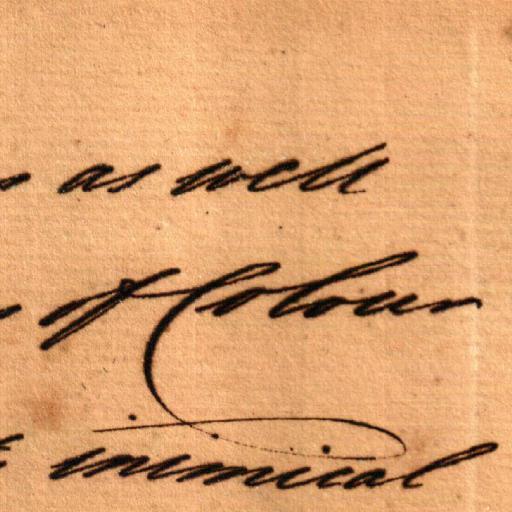 as well
of Colour
inimical